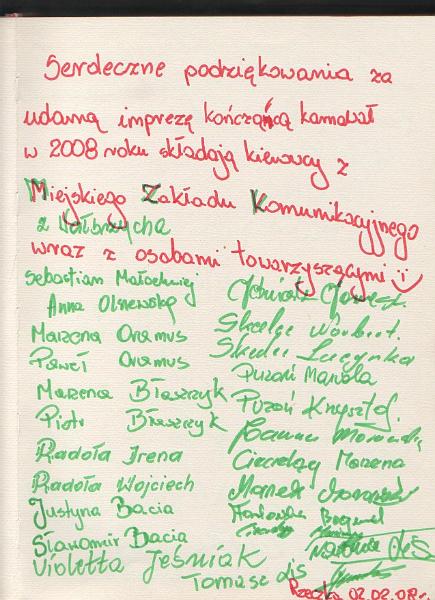 Serdeczne podziękowania za
udaną imprezę kończącą karnawał
w 2008 roku składają kierowcy z
Miejskiego Zakładu Komunikacyjnego
z Wałbrzycha
wraz z osobami towarzyszącymi
Sebastian
Anna
Marzena Onamus
Paweł Onamus
Marzena Błaszczyk
Piotr Błaszczyk
Radoła Irena
Radoła Wojciech
Justyna Bacia
Sławomir Bacia
Violetta Jeśniak
Tomasz Lis
Puzoń Mariola
Puzoń Krzysztof
Marzena
Marek
Rzeczka 02.02.08r.